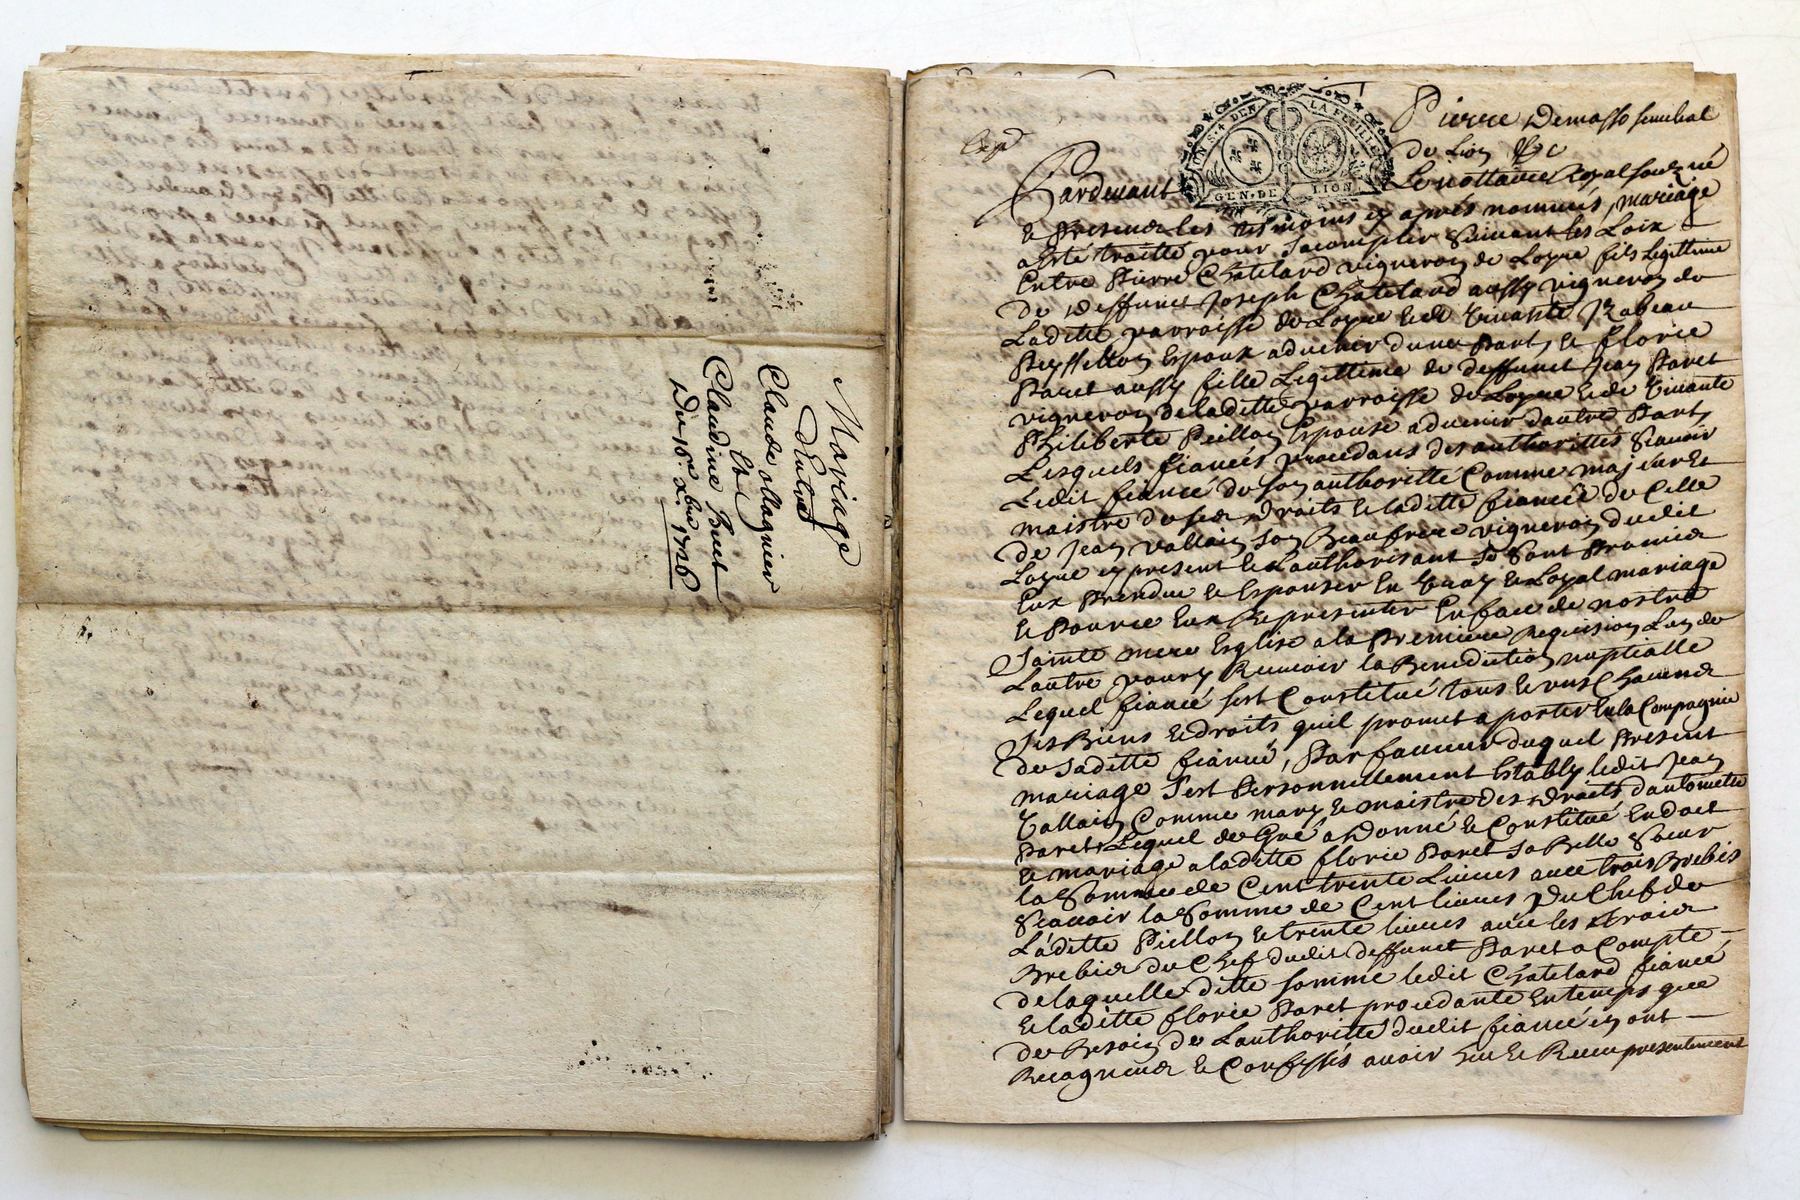 Mariage
D'Entre
Claude ollagnier
Et
Claudine Buet
Du 16e xbre 1726
LA FEUILLE
GEN. DE LION
Pierre Demasso senechal
de Lion &c
Pardevant Le nottaire Royal souzsigné
& Presence Les tesmoins cy apres nommés, mariage
a Esté traitté pour sacomplir suivant les Loix
Entre Pierre Chatelard vigneron de Loyre fils Legittime
de deffunct Joseph Chatelard aussy vigneron de
Laditte parroisse de Loyre & de vivante Izabeau
Espoux advenir dune Part, & florie
Paret aussy fille Legittime de deffunct Jean Paret
vigneron de laditte parroisse de Loyre & de vivante
Philiberte Peillon Espouse advenir dautre Part,
Lesquels fiancés procedans des authorittés sçavoir
Ledit fiancé de son authoritté Comme majeur &
maistre de ses droits & laditte fiancée de Celle
de Jean vallain son Beaufrere vigneron dudit
Loyre cy present & Lauthorisant se sont Promis
Eux Prendre & Espouser En vray & Loyal mariage
& Pource Eux Representer En face de nostre
Sainte mere Esglise a la Premiere Requision Lun de
Lautre pour y Recevoir la Benediction nuptialle
Lequel fiancé sest Constitué tous & uns Chacuns
ses Biens & droits quil promet aporter En la Compagnie
de sa ditte fiancée, Par faveur duquel Present
mariage sest Personnellement Estably ledit Jean
vallain Comme mary & maistre des droits dantoinette
Paret Lequel de Gré a donné & Constitué En dot
& mariage a laditte florie Paret sa Belle Soeur
la Somme de Cent trente Livres avec trois Brebis
Sçavoir la Somme de Cent livres Du Chef de
Laditte Peillon & trente livres avec les trois
Brebis du Chef dudit deffunct Paret a Compte
de laquelle ditte somme ledit Chatelard fiancé
& laditte florie Paret procedante En temps que
de Besoin de Lauthoritté dudit fiancé cy ont
Recogneus & Confessés avoir Heu & Receu presentement